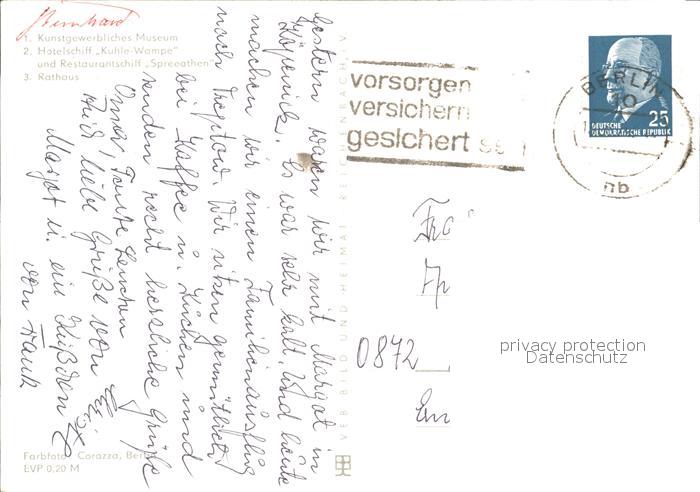 Bernhard
1. Kunstgewerbliches Museum
2. Hotelschiff „Kuhle-Wampe“
und Restaurantschiff „Spreeathen“
3. Rathaus
Gestern waren wir mit Margot in
Köpenick. Es war sehr kalt. Und heute
machen wir einen Familienausflug
nach Treptow. Wir sitzen gemütlich
bei Kaffee u. Kuchen und
senden recht herzliche Grüße
Oma, Tante Lenchen
und liebe Grüße von
Margot u. ein Küßchen
von Frank
Farbfoto: Corazza, Berlin
EVP 0,20 M
VEB BILD UND HEIMAT REICHENBACH I. V.
vorsorgen
versichern
gesichert
BERLIN
10
nb
25
DEUTSCHE
DEMOKRATISCHE REPUBLIK
0872
privacy protection
Datenschutz